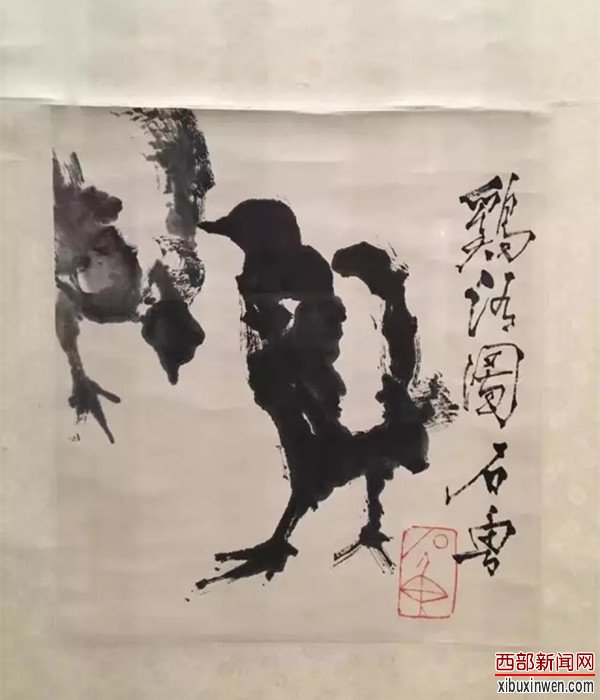 鷄圖石魯
西部新闻网
xibuxinwen.com